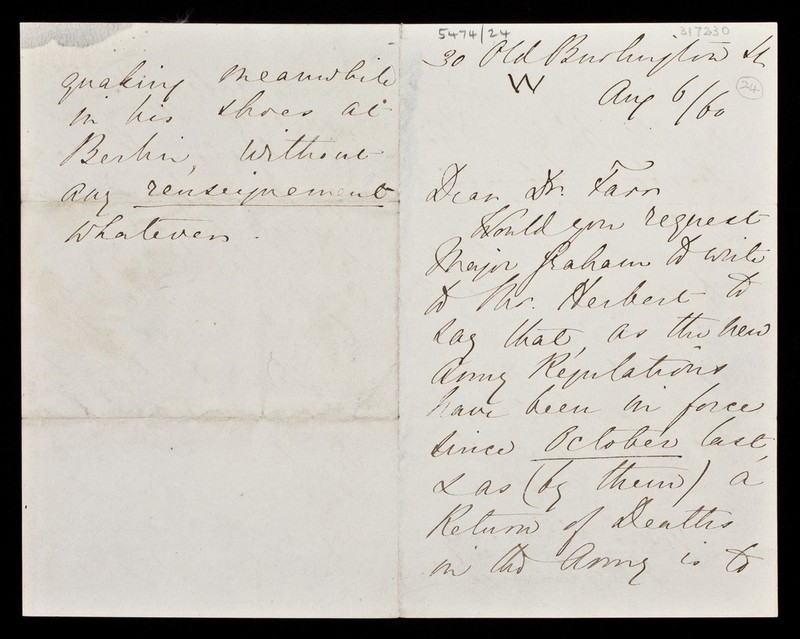 5474/24
317230
30 Old Burlington St
W
24
Aug 6/60
Dear Dr. Farr
Would you request
Major Graham to write
to Mr. Herbert to
say that, as the new
Army Regulations
have been in force
since October last,
& as (by them) a
Return of Deaths
in the Army is to
quaking meanwhile
in his shoes at
Berlin, without
any renseignement
whatever.